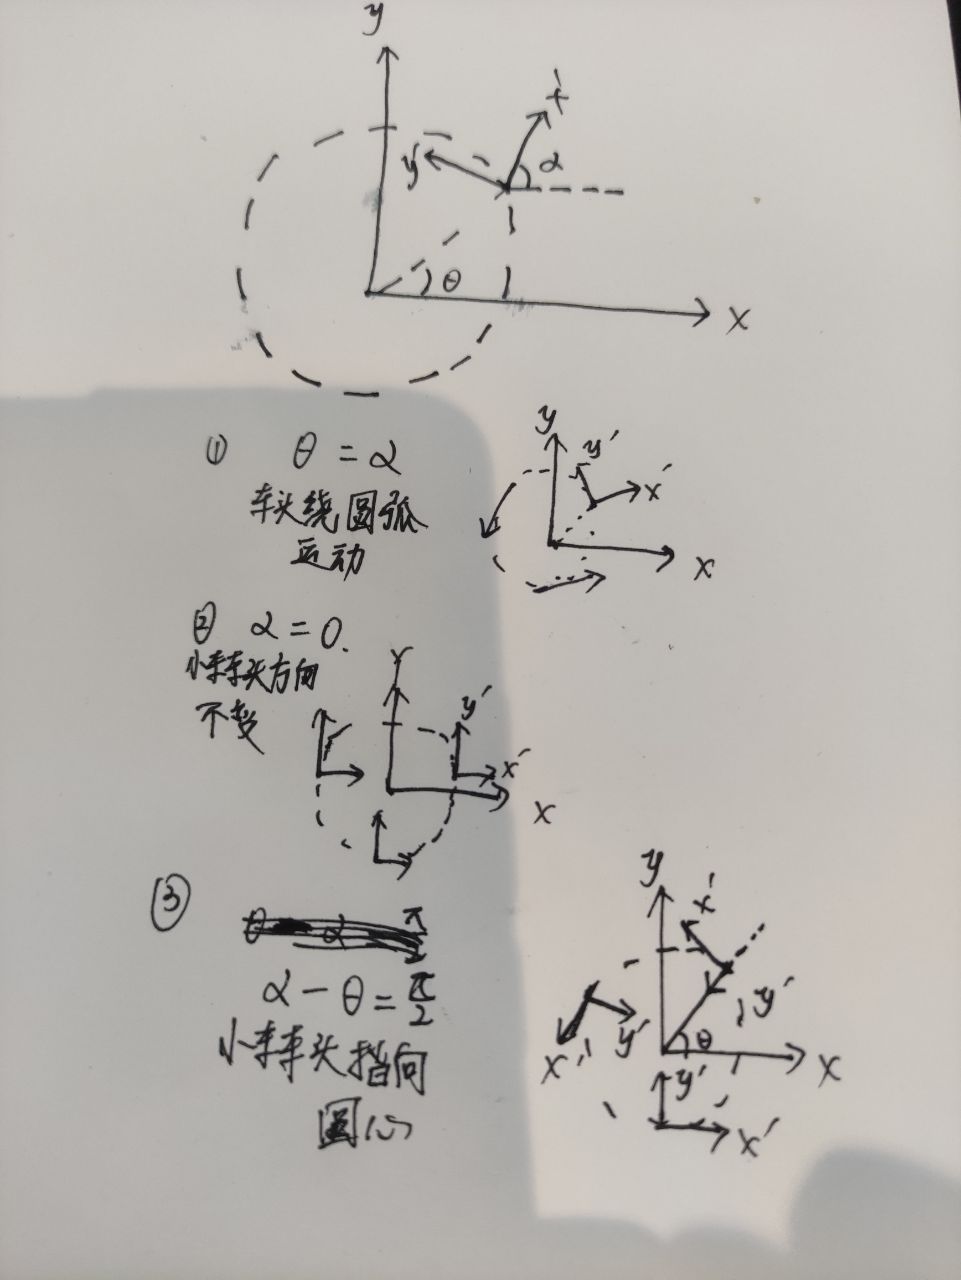 y
x'
y'
α
θ
x
① θ = α
车头绕圆弧
运动
y
y'
x'
x
② α = 0.
小车车头方向
不变
Y
y'
x'
x
③
α - θ = π/2
小车车头指向
圆心
y
x'
y'
θ
x
x'
y'
y'
x'